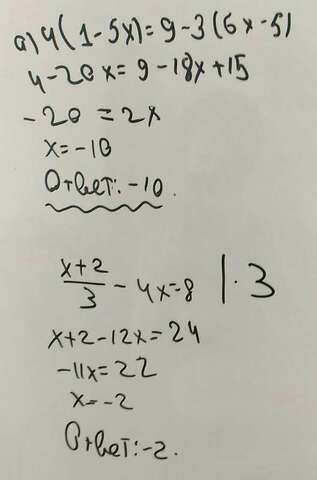 а) 4(1-5x)=9-3(6x-5)
4-20x=9-18x+15
-20=2x
x=-10
Ответ: -10.
x+2/3 - 4x=8 | · 3
x+2-12x=24
-11x=22
x=-2
Ответ: -2.